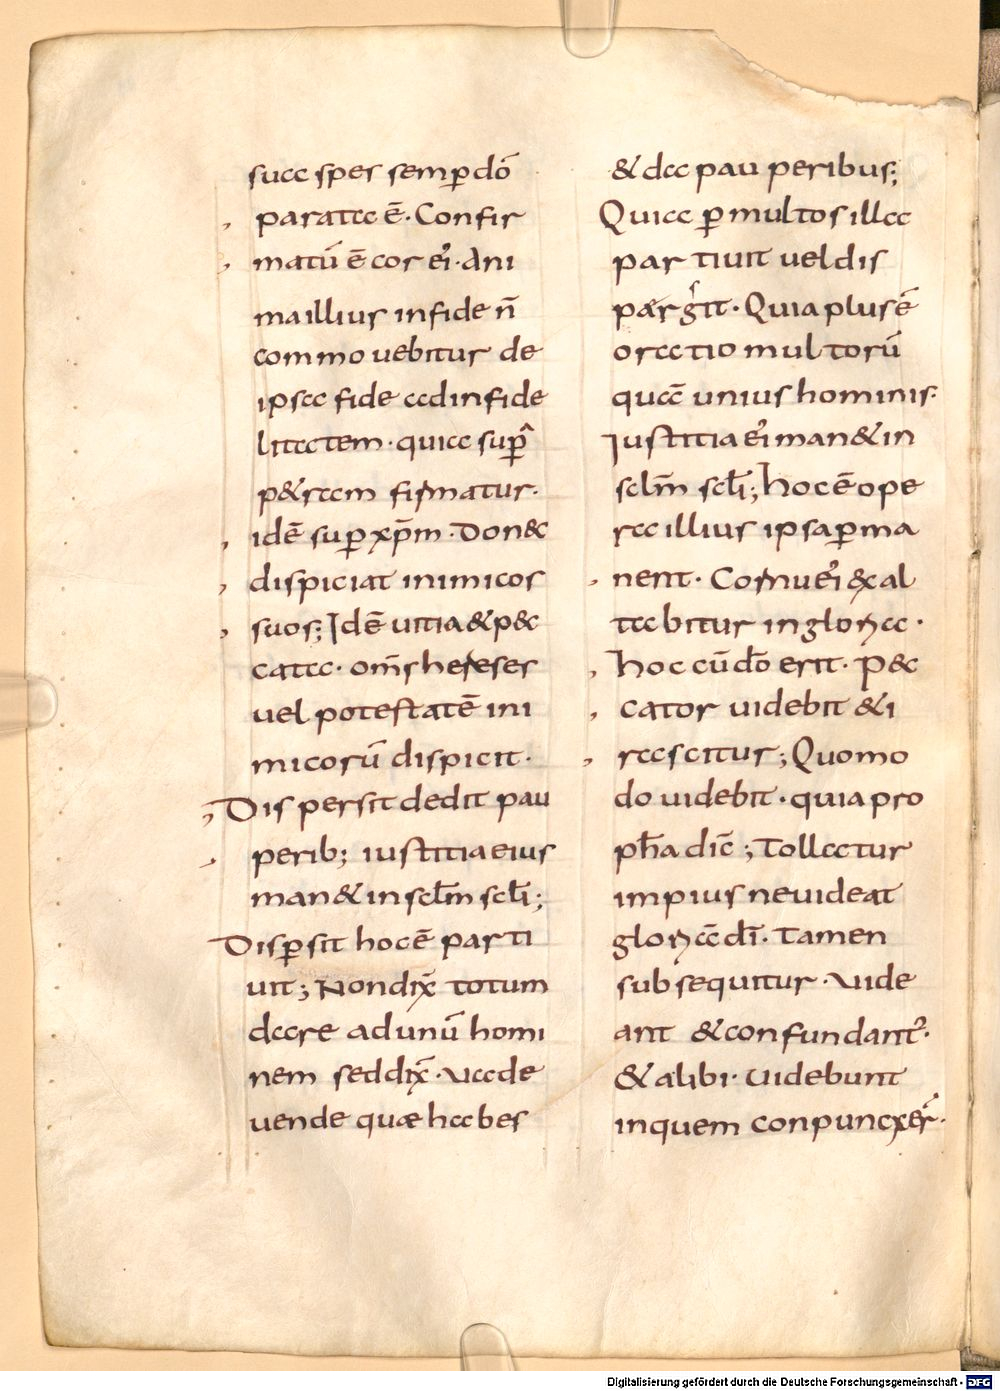 sua spes semp̱ do̅
parata e̅. Confir
matu̅ e̅ cor ei᾿. Ani
ma illius in fide n̅
commouebitur de
ipsa fide ad infide
litatem. quia sup̱
p&ram firmatur.
ide̅ sup̱ xp̅m. Don&c
dispiciat inimicos
suos; Ide̅ uitia & p&
cata. om̅s hereses
uel potestate̅ ini
micoru̅ dispicit.
Dispersit dedit pau
perib; iustitia eius
man& in scl̅m scl̅i;
Disp̱sit hoc e̅ parti
uit; Non dix̅ totum
dare ad unu̅ homi
nem sed dix̅. Uade
uende quæ habes
& da pauperibus;
Quia p̱ multos illa
partiuit uel dis
pargit. Quia plus e̅
oratio multoru̅
qua̅ unius hominis.
Iustitia ei᾿ man& in
scl̅m scl̅i; hoc e̅ ope
ra illius ipsa p̱ma
nent. Cornu ei᾿ exal
tabitur in gloria.
hoc cu̅ do̅ erit. P&c
cator uidebit & i
rascitur; Quomo
do uidebit. quia pro
ph̅a dic̅; Tollatur
impius ne uideat
gloria̅ di̅. Tamen
subsequitur. Uide
ant & confundant᾿.
& alibi. Uidebunt
in quem conpunxer̅.
Digitalisierung gefördert durch die Deutsche Forschungsgemeinschaft - DFG